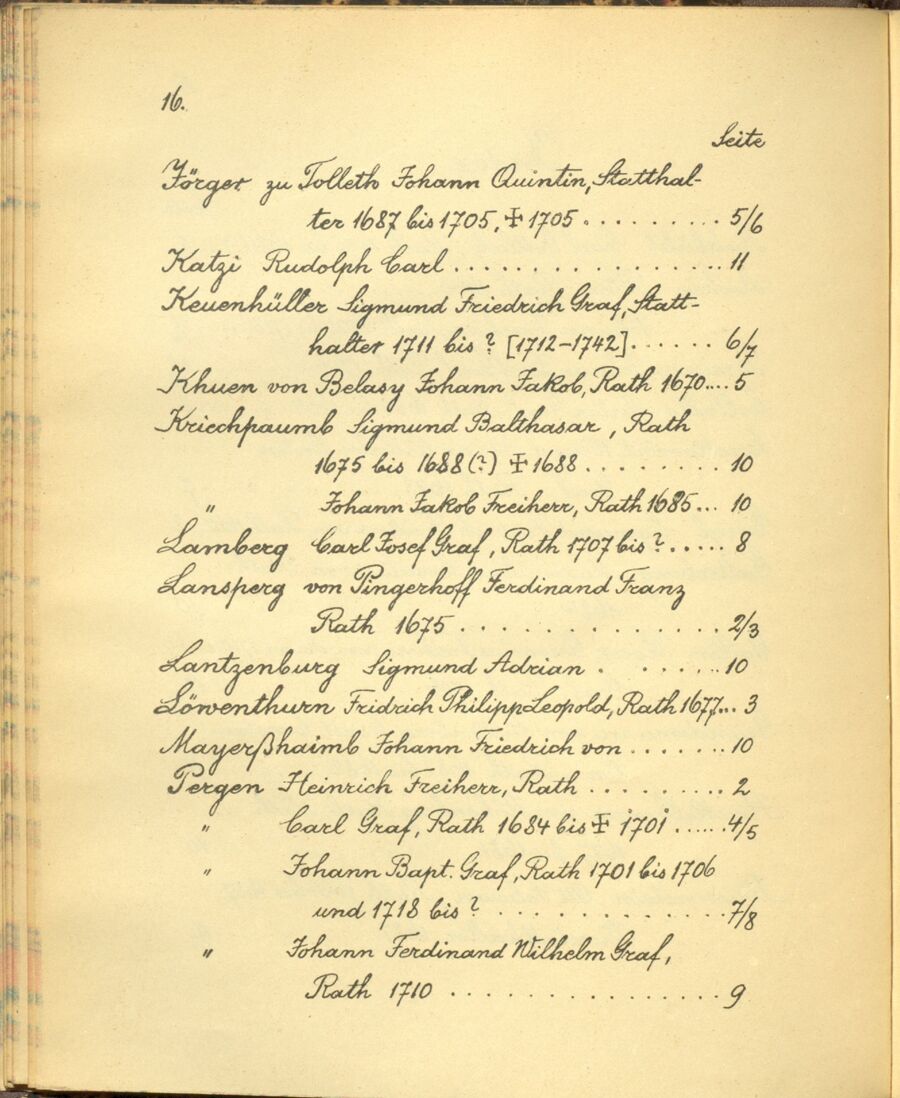 16.
Seite
Jörger zu Tolleth Johann Quintin, Statthal-
ter 1687 bis 1705, ✠ 1705 . . . . . . . . . 5/6
Katzi Rudolph Carl . . . . . . . . . . . . . . . . 11
Keuenhüller Sigmund Friedrich Graf, Statt-
halter 1711 bis ? [1712–1742] . . . . . . 6/7
Khuen von Belasy Johann Jakob, Rath 1670.... 5
Kriechpaumb Sigmund Balthasar, Rath
1675 bis 1688 (?) ✠ 1688 . . . . . . . . 10
" Johann Jakob Freiherr, Rath 1685... 10
Lamberg Carl Josef Graf, Rath 1707 bis ? ..... 8
Lansperg von Pingerhoff Ferdinand Franz
Rath 1675 . . . . . . . . . . . . . . 2/3
Lantzenburg Sigmund Adrian . . . . . . . 10
Löwenthurn Fridrich Philipp Leopold, Rath 1677... 3
Mayerßhaimb Johann Friedrich von . . . . . . . 10
Pergen Heinrich Freiherr, Rath . . . . . . . . . 2
" Carl Graf, Rath 1684 bis ✠ 1701 ...... 4/5
" Johann Bapt. Graf, Rath 1701 bis 1706
und 1718 bis ? . . . . . . . . . . . . . 7/8
" Johann Ferdinand Wilhelm Graf,
Rath 1710 . . . . . . . . . . . . . . . . 9